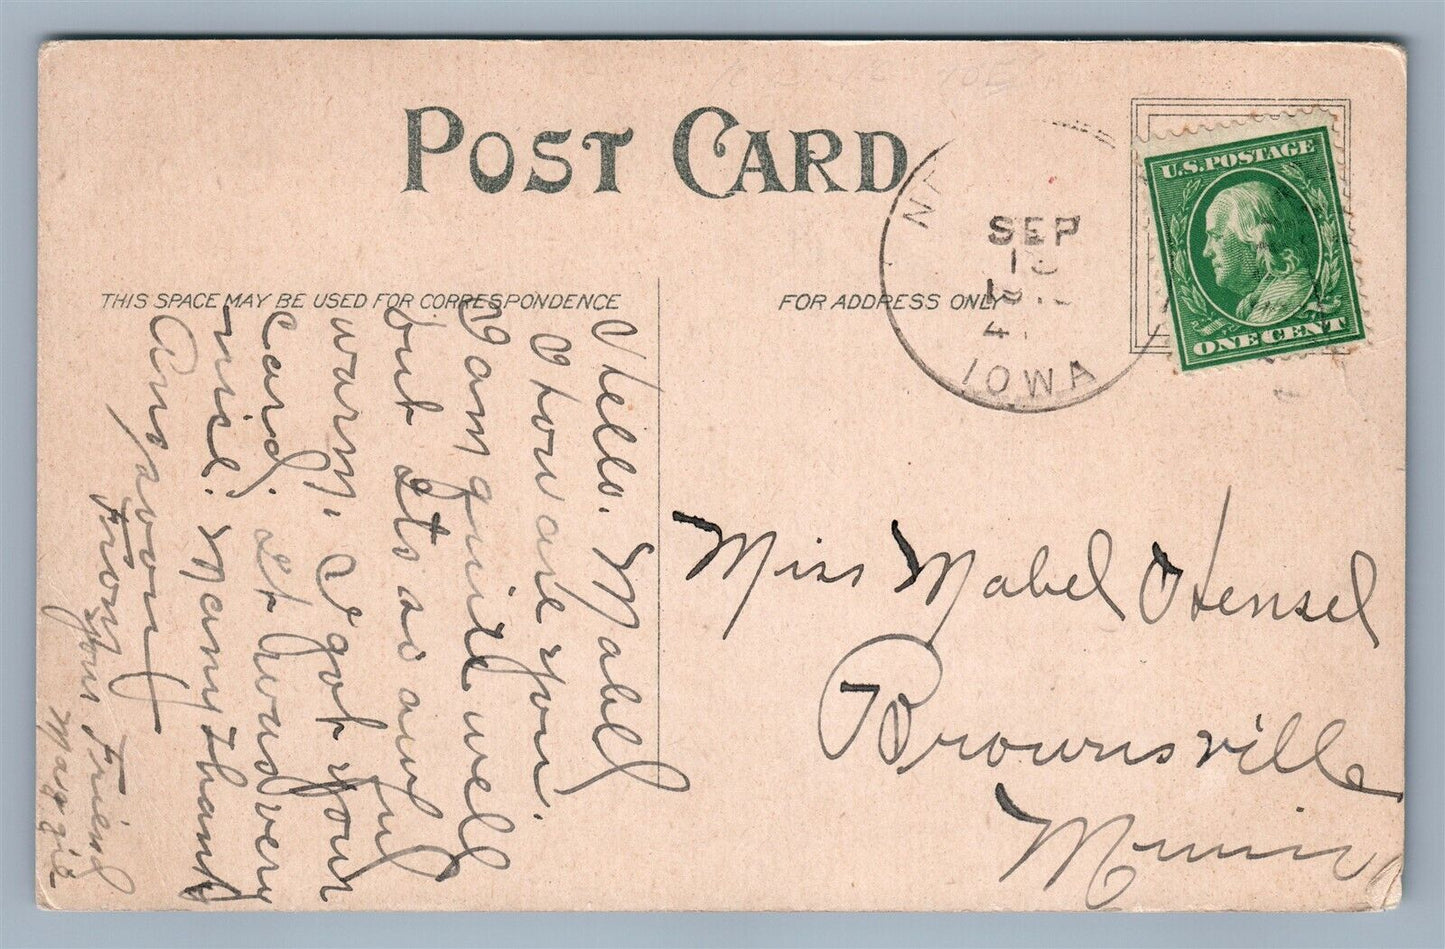 POST CARD
THIS SPACE MAY BE USED FOR CORRESPONDENCE
FOR ADDRESS ONLY
SEP
IOWA
U.S. POSTAGE
ONE CENT
Hello. Mabel
How are you.
I am quite well
but its so awful
warm. I got your
card. It was very
nice. Many thank
Ans soon
From
your Friend
Maggie
Miss Mabel Hensel
Brownsville
Minn